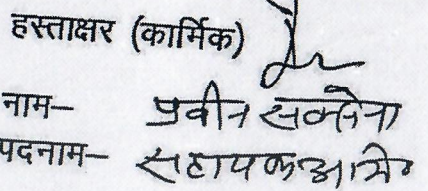 हस्ताक्षर (कार्मिक)
नाम– प्रवीन सक्सेना
पदनाम– सहायक